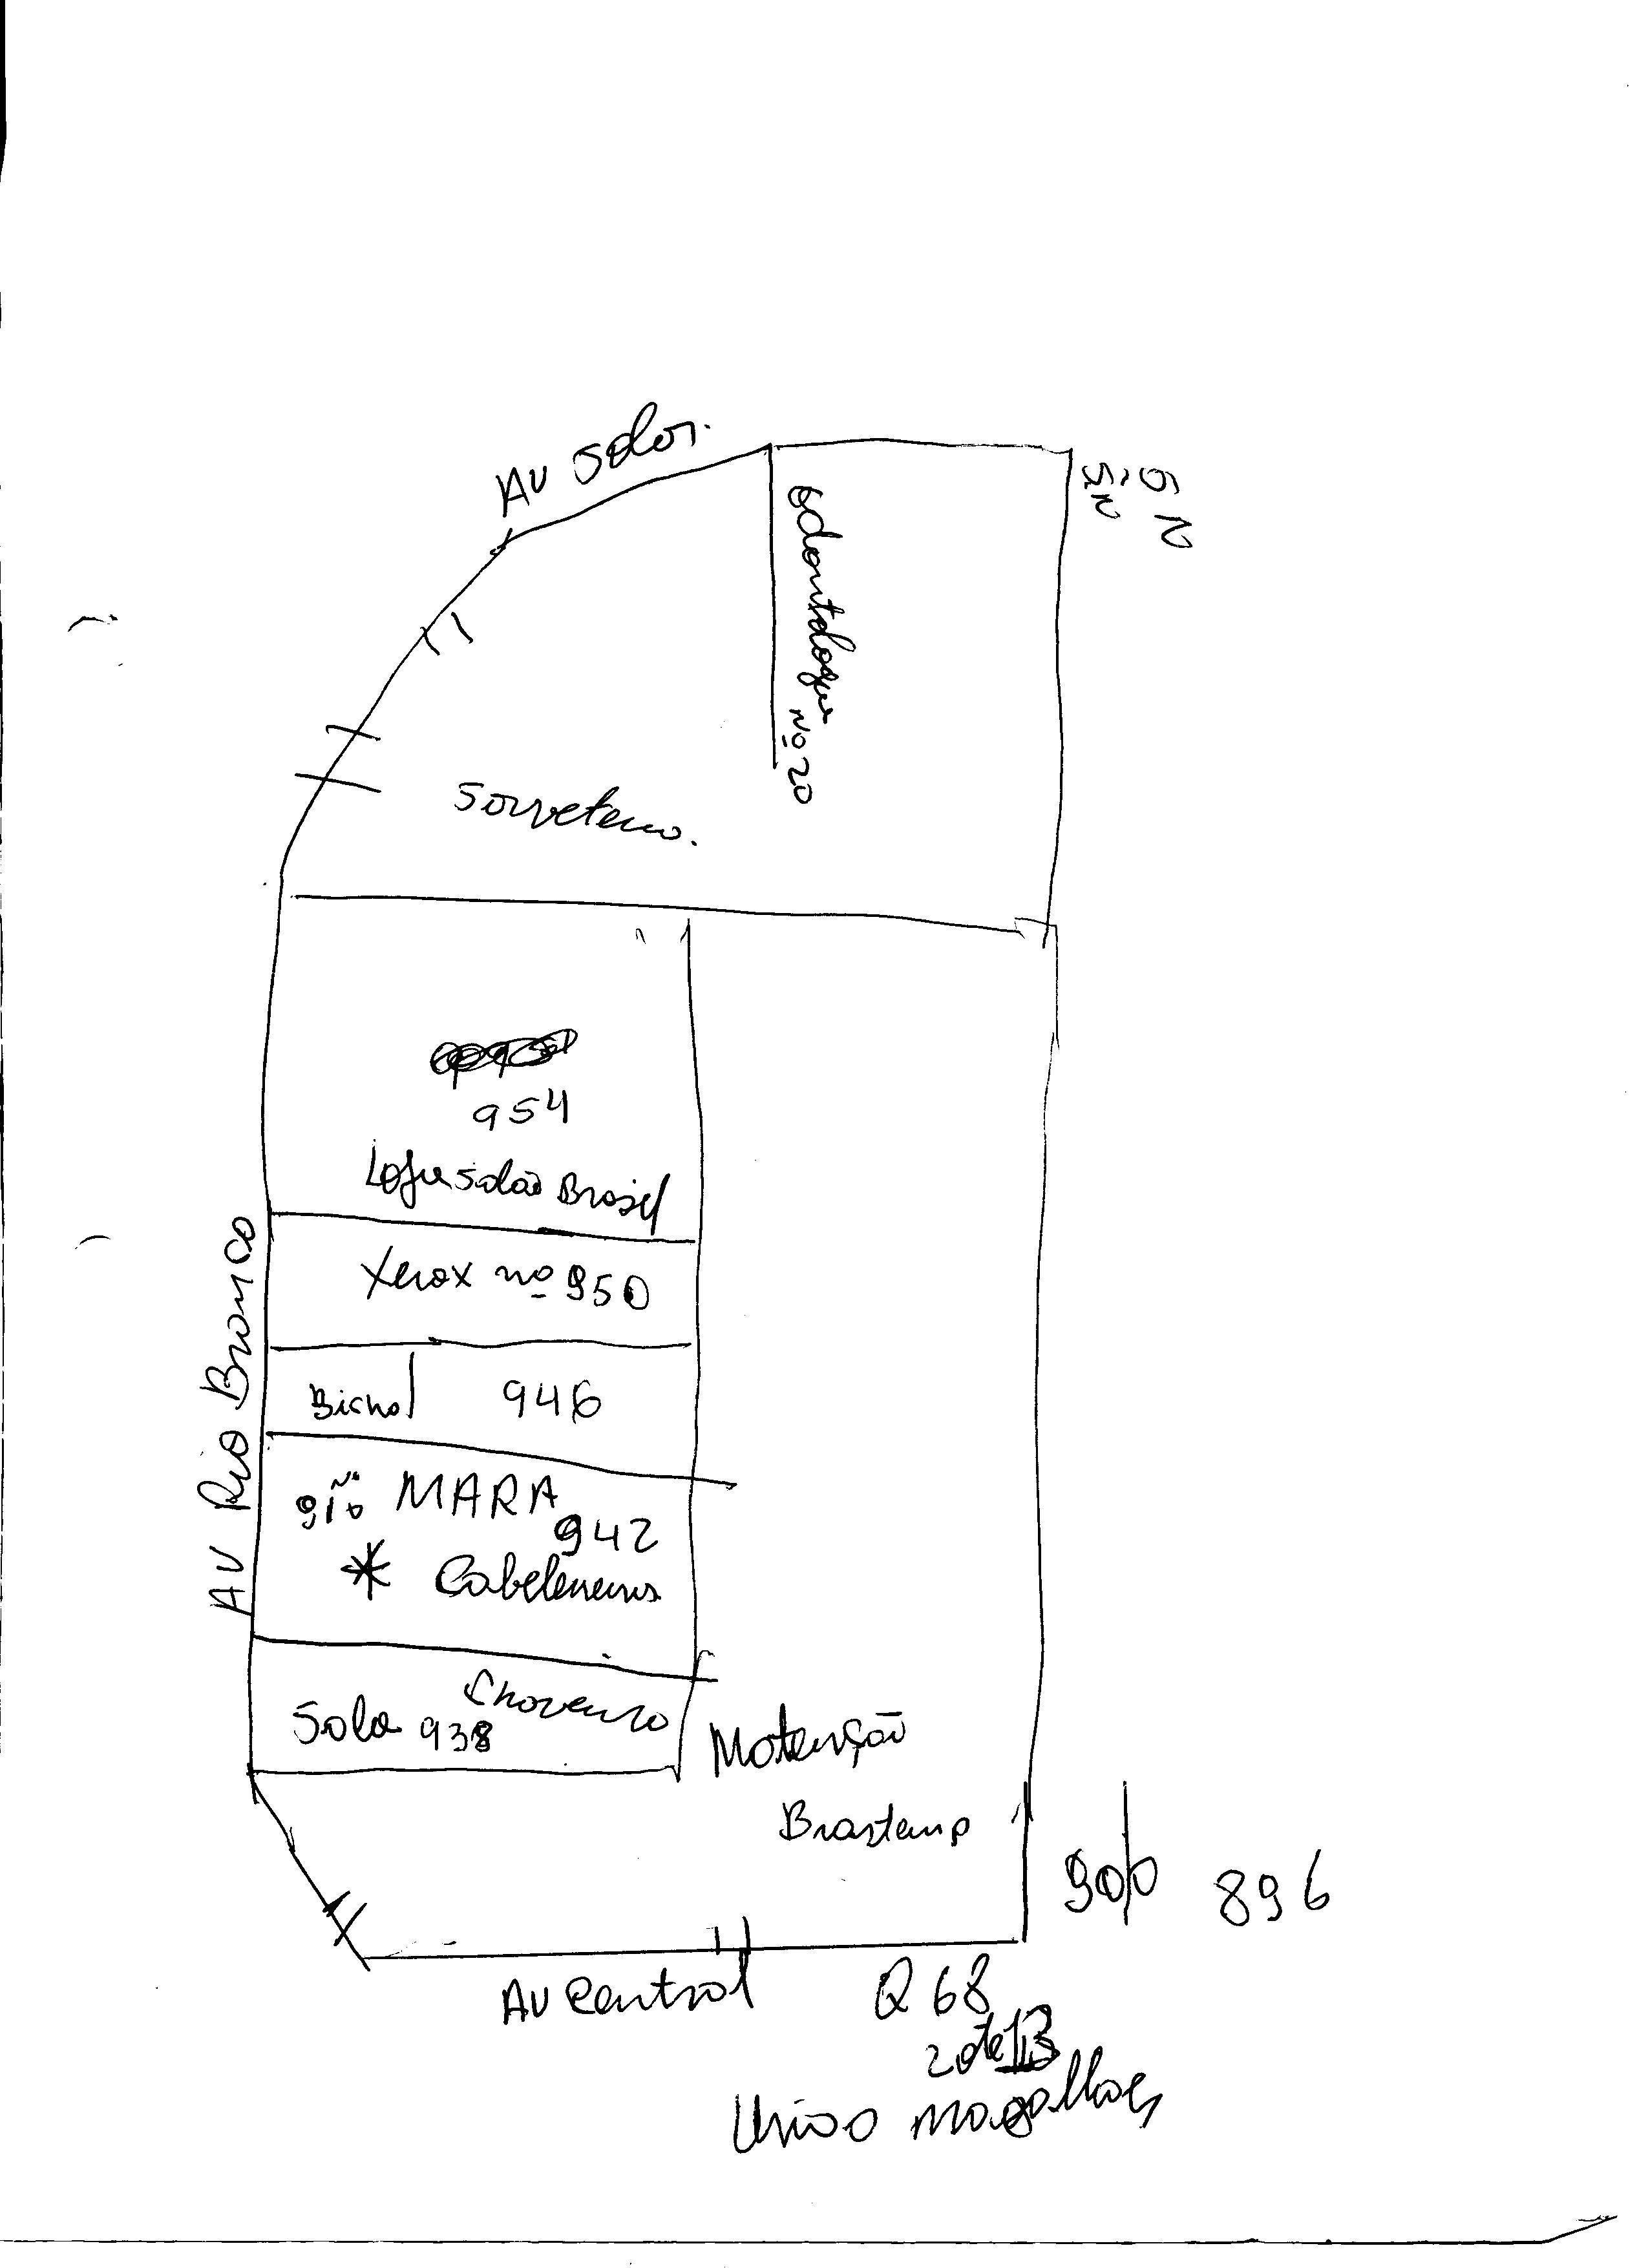 AV Solar.
Odontologia nº 20
Sorveteria.
954
Loja Salão Brasil
Xerox nº 950
Bicho 946
Nº MARA
942
* Cabelereira
Chaveiro
Sala 938
AV Rio Branco
Motenção
Brastemp
900 896
AV Central Q 68
Lote 13
União Magalhães